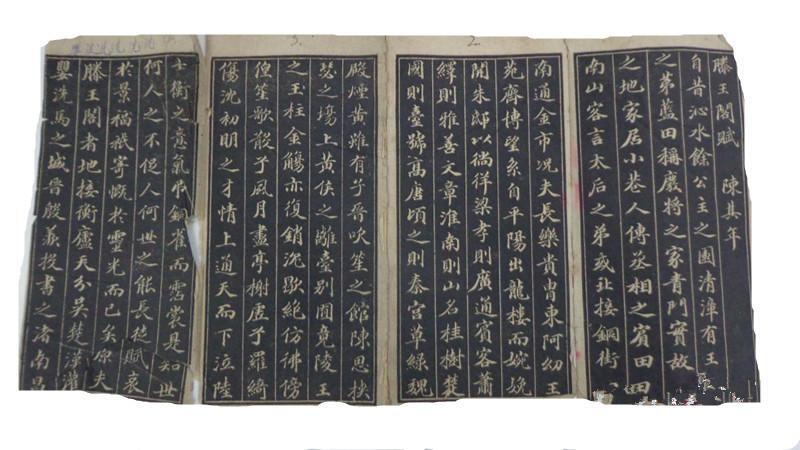 滕王閣賦 陳其年
自昔沁水餘公主之園清漳有王
之茀藍田稱廢將之家青門實故
之地家居小巷人傳丞相之賓田田
南山客言太后之弟或北接銅街
2
南通金市况夫長樂貴胄東阿幼王
苑齊博望系自平陽出龍樓而婉娩
開朱邸以徜徉梁孝則廣通賓客蕭
繹則雅善文章淮南則山名桂樹楚
國則臺號高唐頃之則秦宮草綠魏
3.
殿煙黄雖有子晋吹笙之館陳思挾
瑟之場上黄侯之離臺别囿竟陵王
之玉柱金觴亦復銷沉歇絶仿彿傍
徨笙歌散乎風月畫亭榭虚乎羅綺
傷沈初明之才情上通天而下泣陸
士衡之意氣弔銅雀而霑裳是知世
何人之不促人何世之能長徒賦哀
於景福祇寄慨於靈光而已矣原夫
滕王閣者地接衡廬天分吳楚漢灌
嬰洗馬之城晋殷羨投書之渚南昌